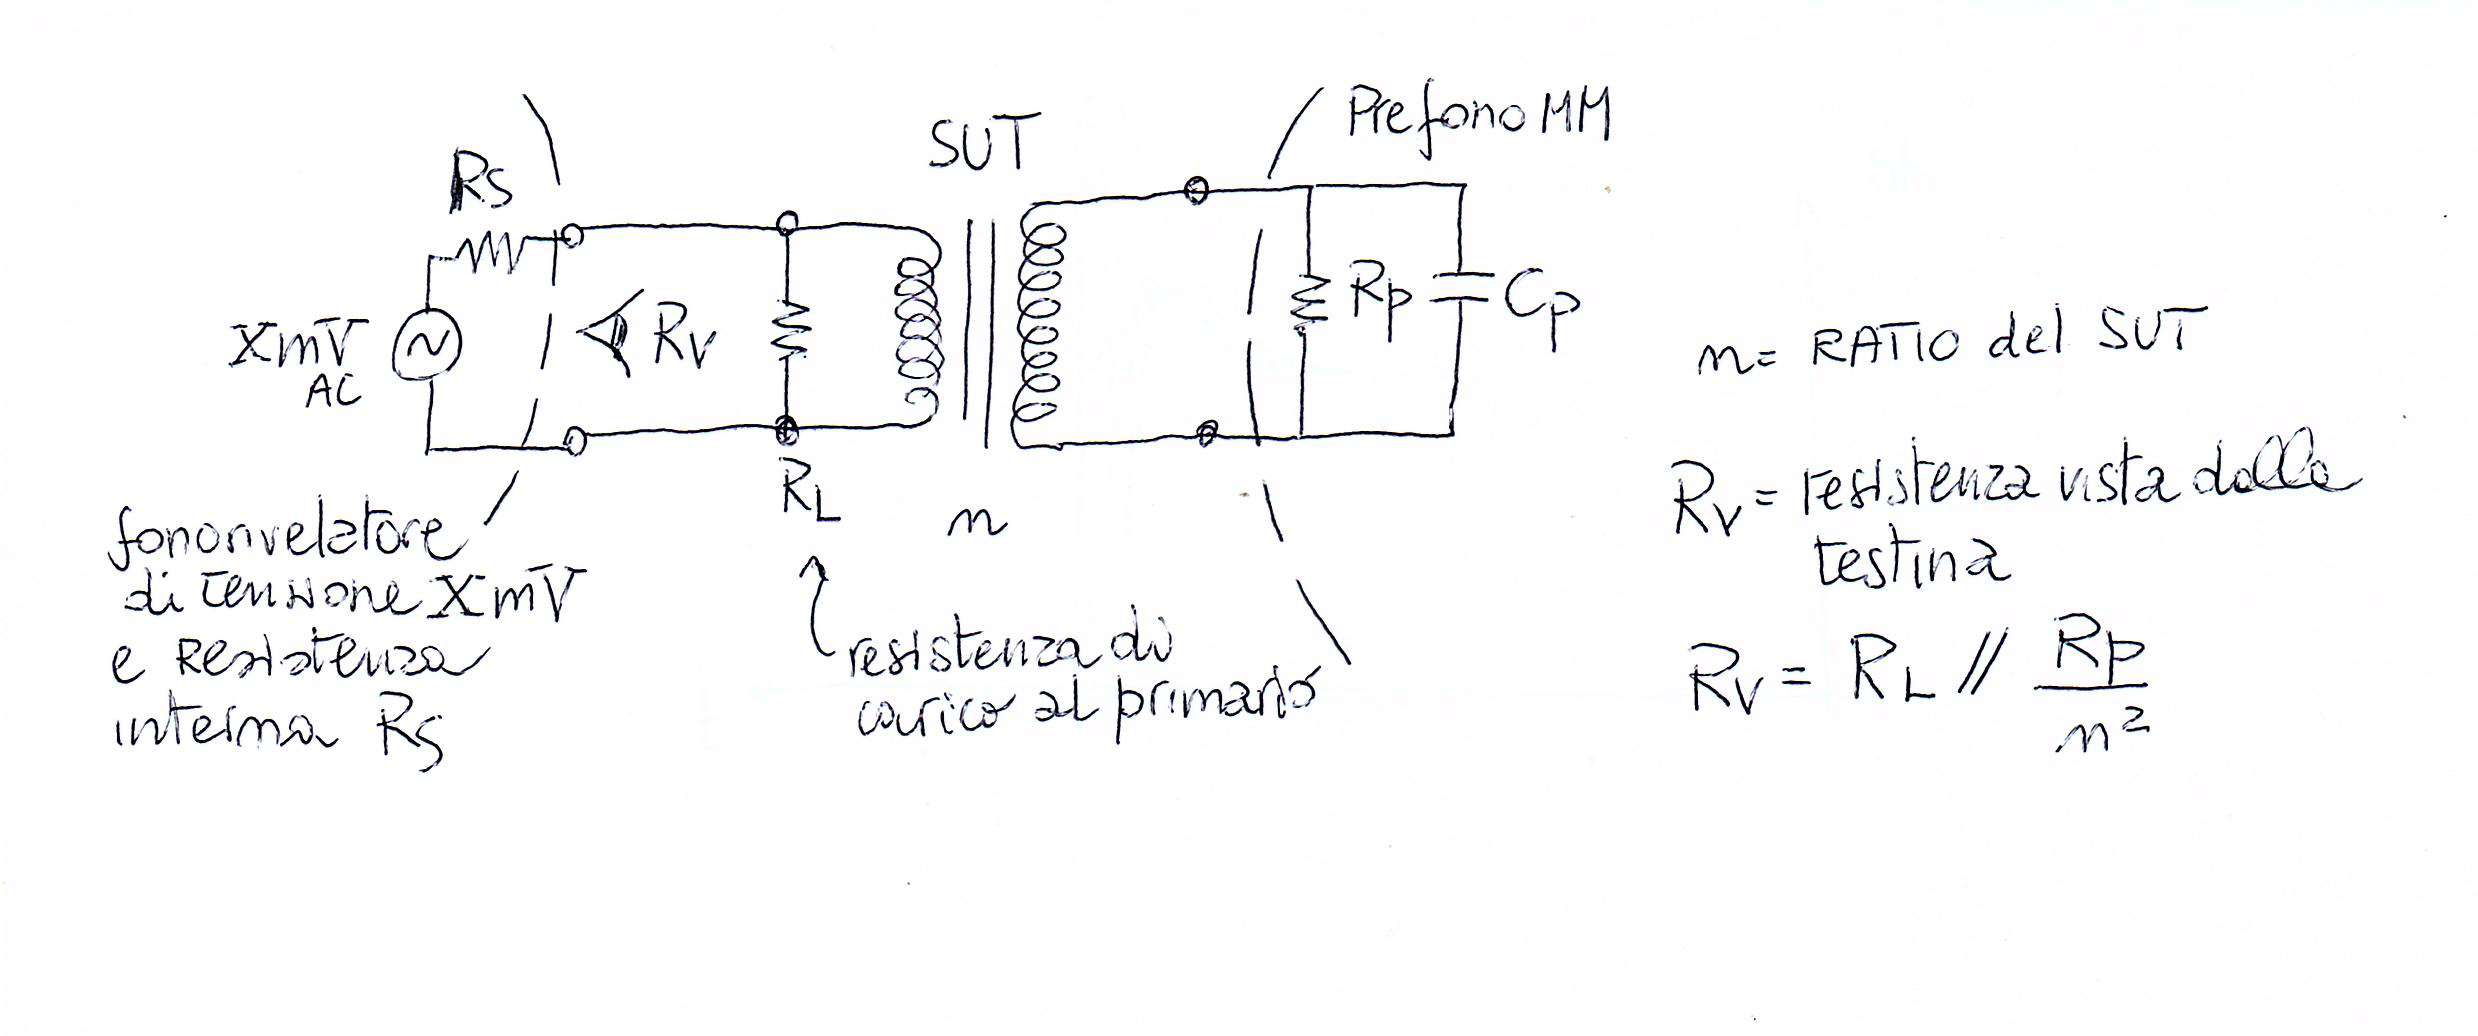 Rs
SUT
Prefono MM
XmV
AC
Rv
Rp
Cp
RL
n
fonorivelatore
di tensione XmV
e Resistenza
interna Rs
resistenza di
carico al primario
n = RATIO del SUT
Rv = resistenza vista dalla
testina
Rv = RL // Rp
n²